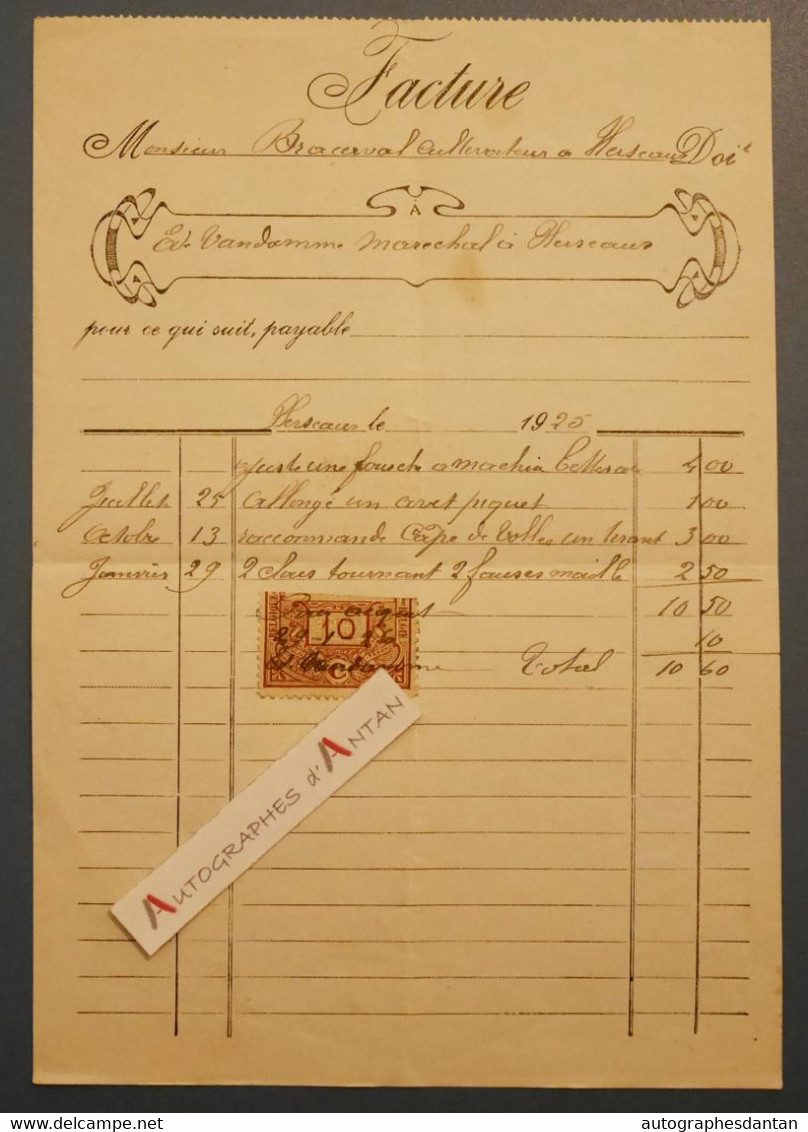 Facture
Monsieur Bracaval Cultivateur a Herseaux Doit
À
Ed. Vandamme Marechal à Herseaux
pour ce qui suit, payable
Herseaux le 1925
une a machin 4 00
Juillet 25 allongé un piquet 1 00
Octobre 13 raccomande un tirant 3 00
Janvier 29 2 clous tournant 2 fauses maille 2 50
Pour acquit 10 50
29 1 26 10
Vandamme Total 10 60
BELGIQUE
10
C
AUTOGRAPHES d'ANTAN
delcampe.net
autographesdantan